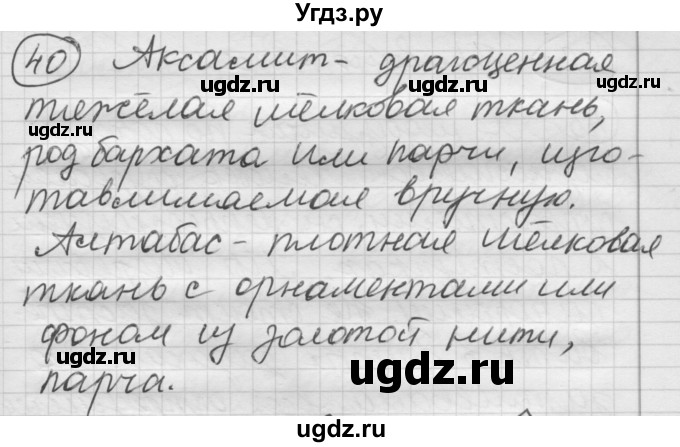 Угдз.ру
40 Аксамит - драгоценная
тяжёлая шёлковая ткань,
род бархата или парчи, изго-
тавливаемая вручную.
Алтабас - плотная шёлковая
ткань с орнаментами или
фоном из золотой нити,
парча.
ugdz.ru
ugdz.ru
ugdz.ru
ugdz.ru
ugdz.ru
ugdz.ru
ugdz.ru
ugdz.ru
ugdz.ru
ugdz.ru
ugdz.ru
ugdz.ru